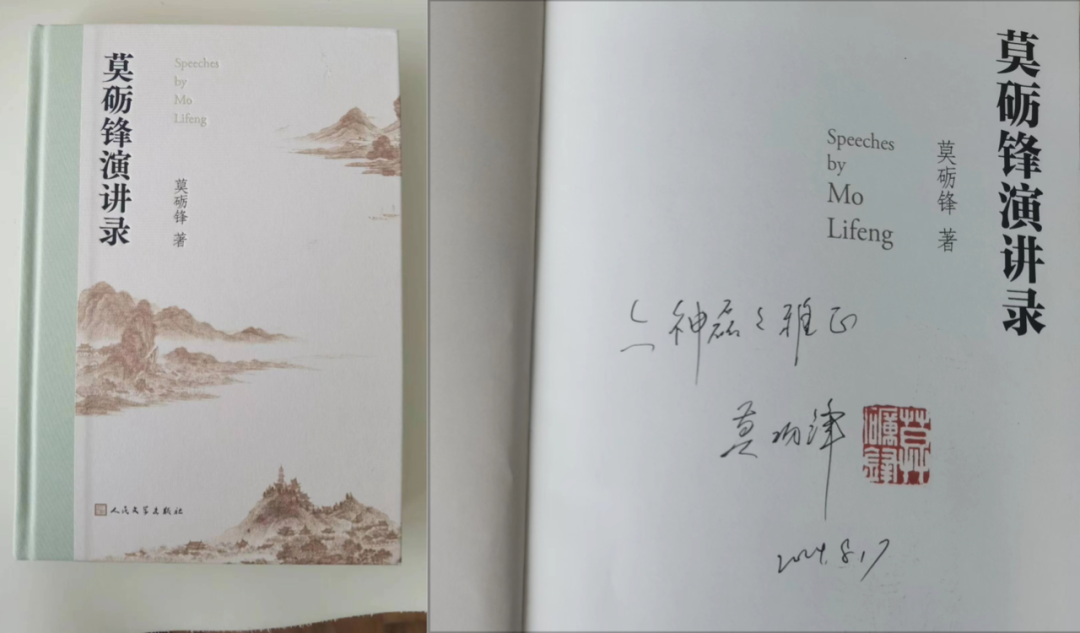 莫砺锋演讲录
Speeches
by
Mo
Lifeng
莫砺锋 著
人民文学出版社
莫砺锋演讲录
莫砺锋 著
Speeches
by
Mo
Lifeng
六神磊々雅正
莫砺锋
莫礪鋒
2024.8.17